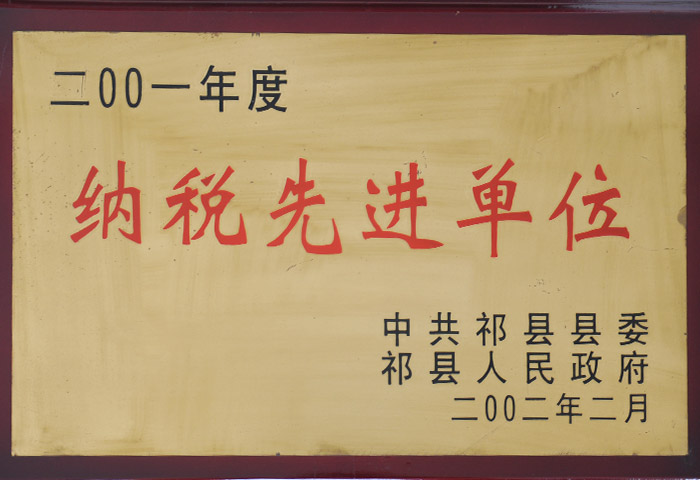 二00一年度
纳税先进单位
中共祁县县委
祁县人民政府
二00二年二月